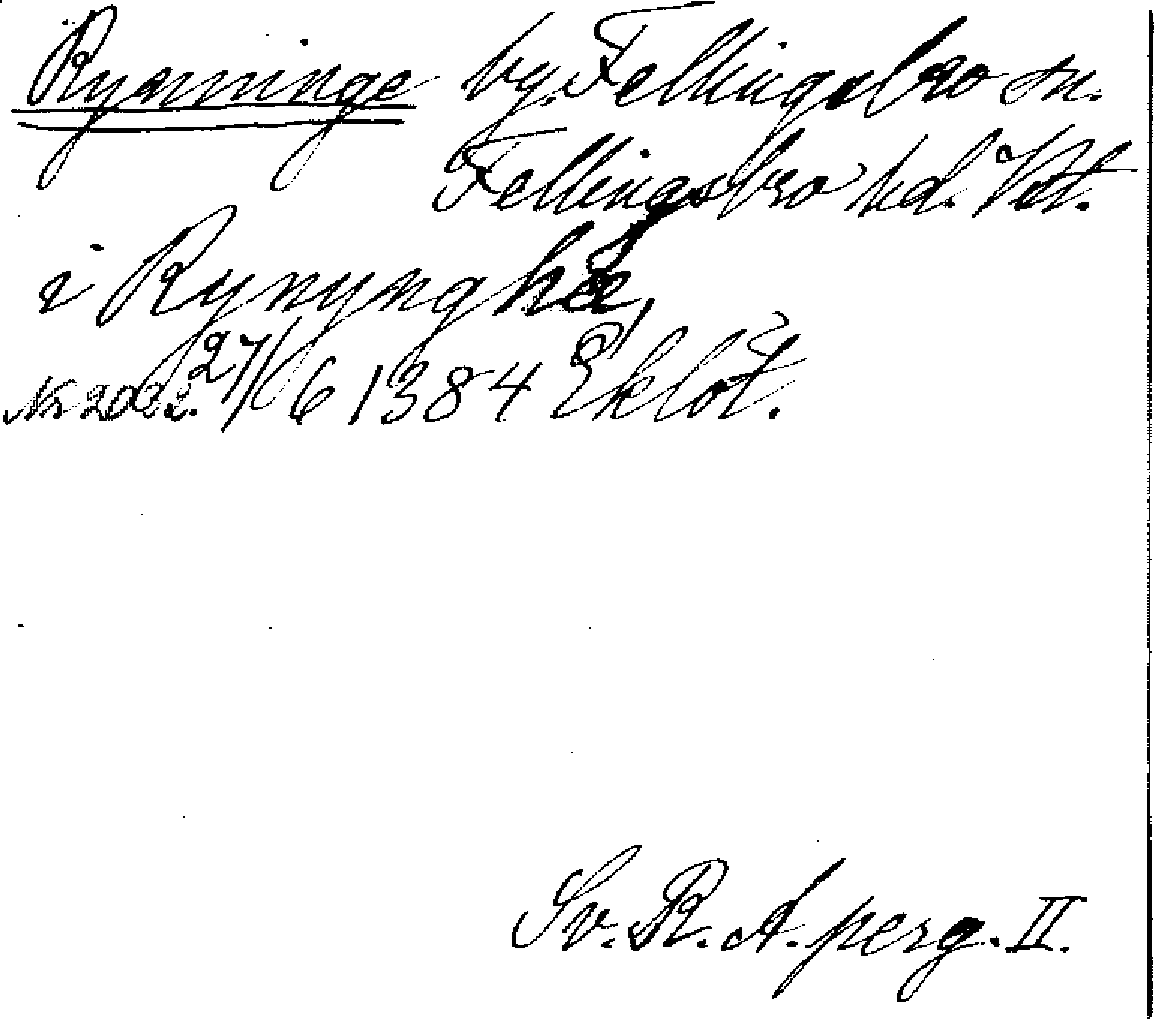 Rynninge by. Fellingsbro sn.
Fellingsbro hd. Vst.
i Rynyngh
27/6 1384 Eklöt.
Sv. R. A. perg. II.